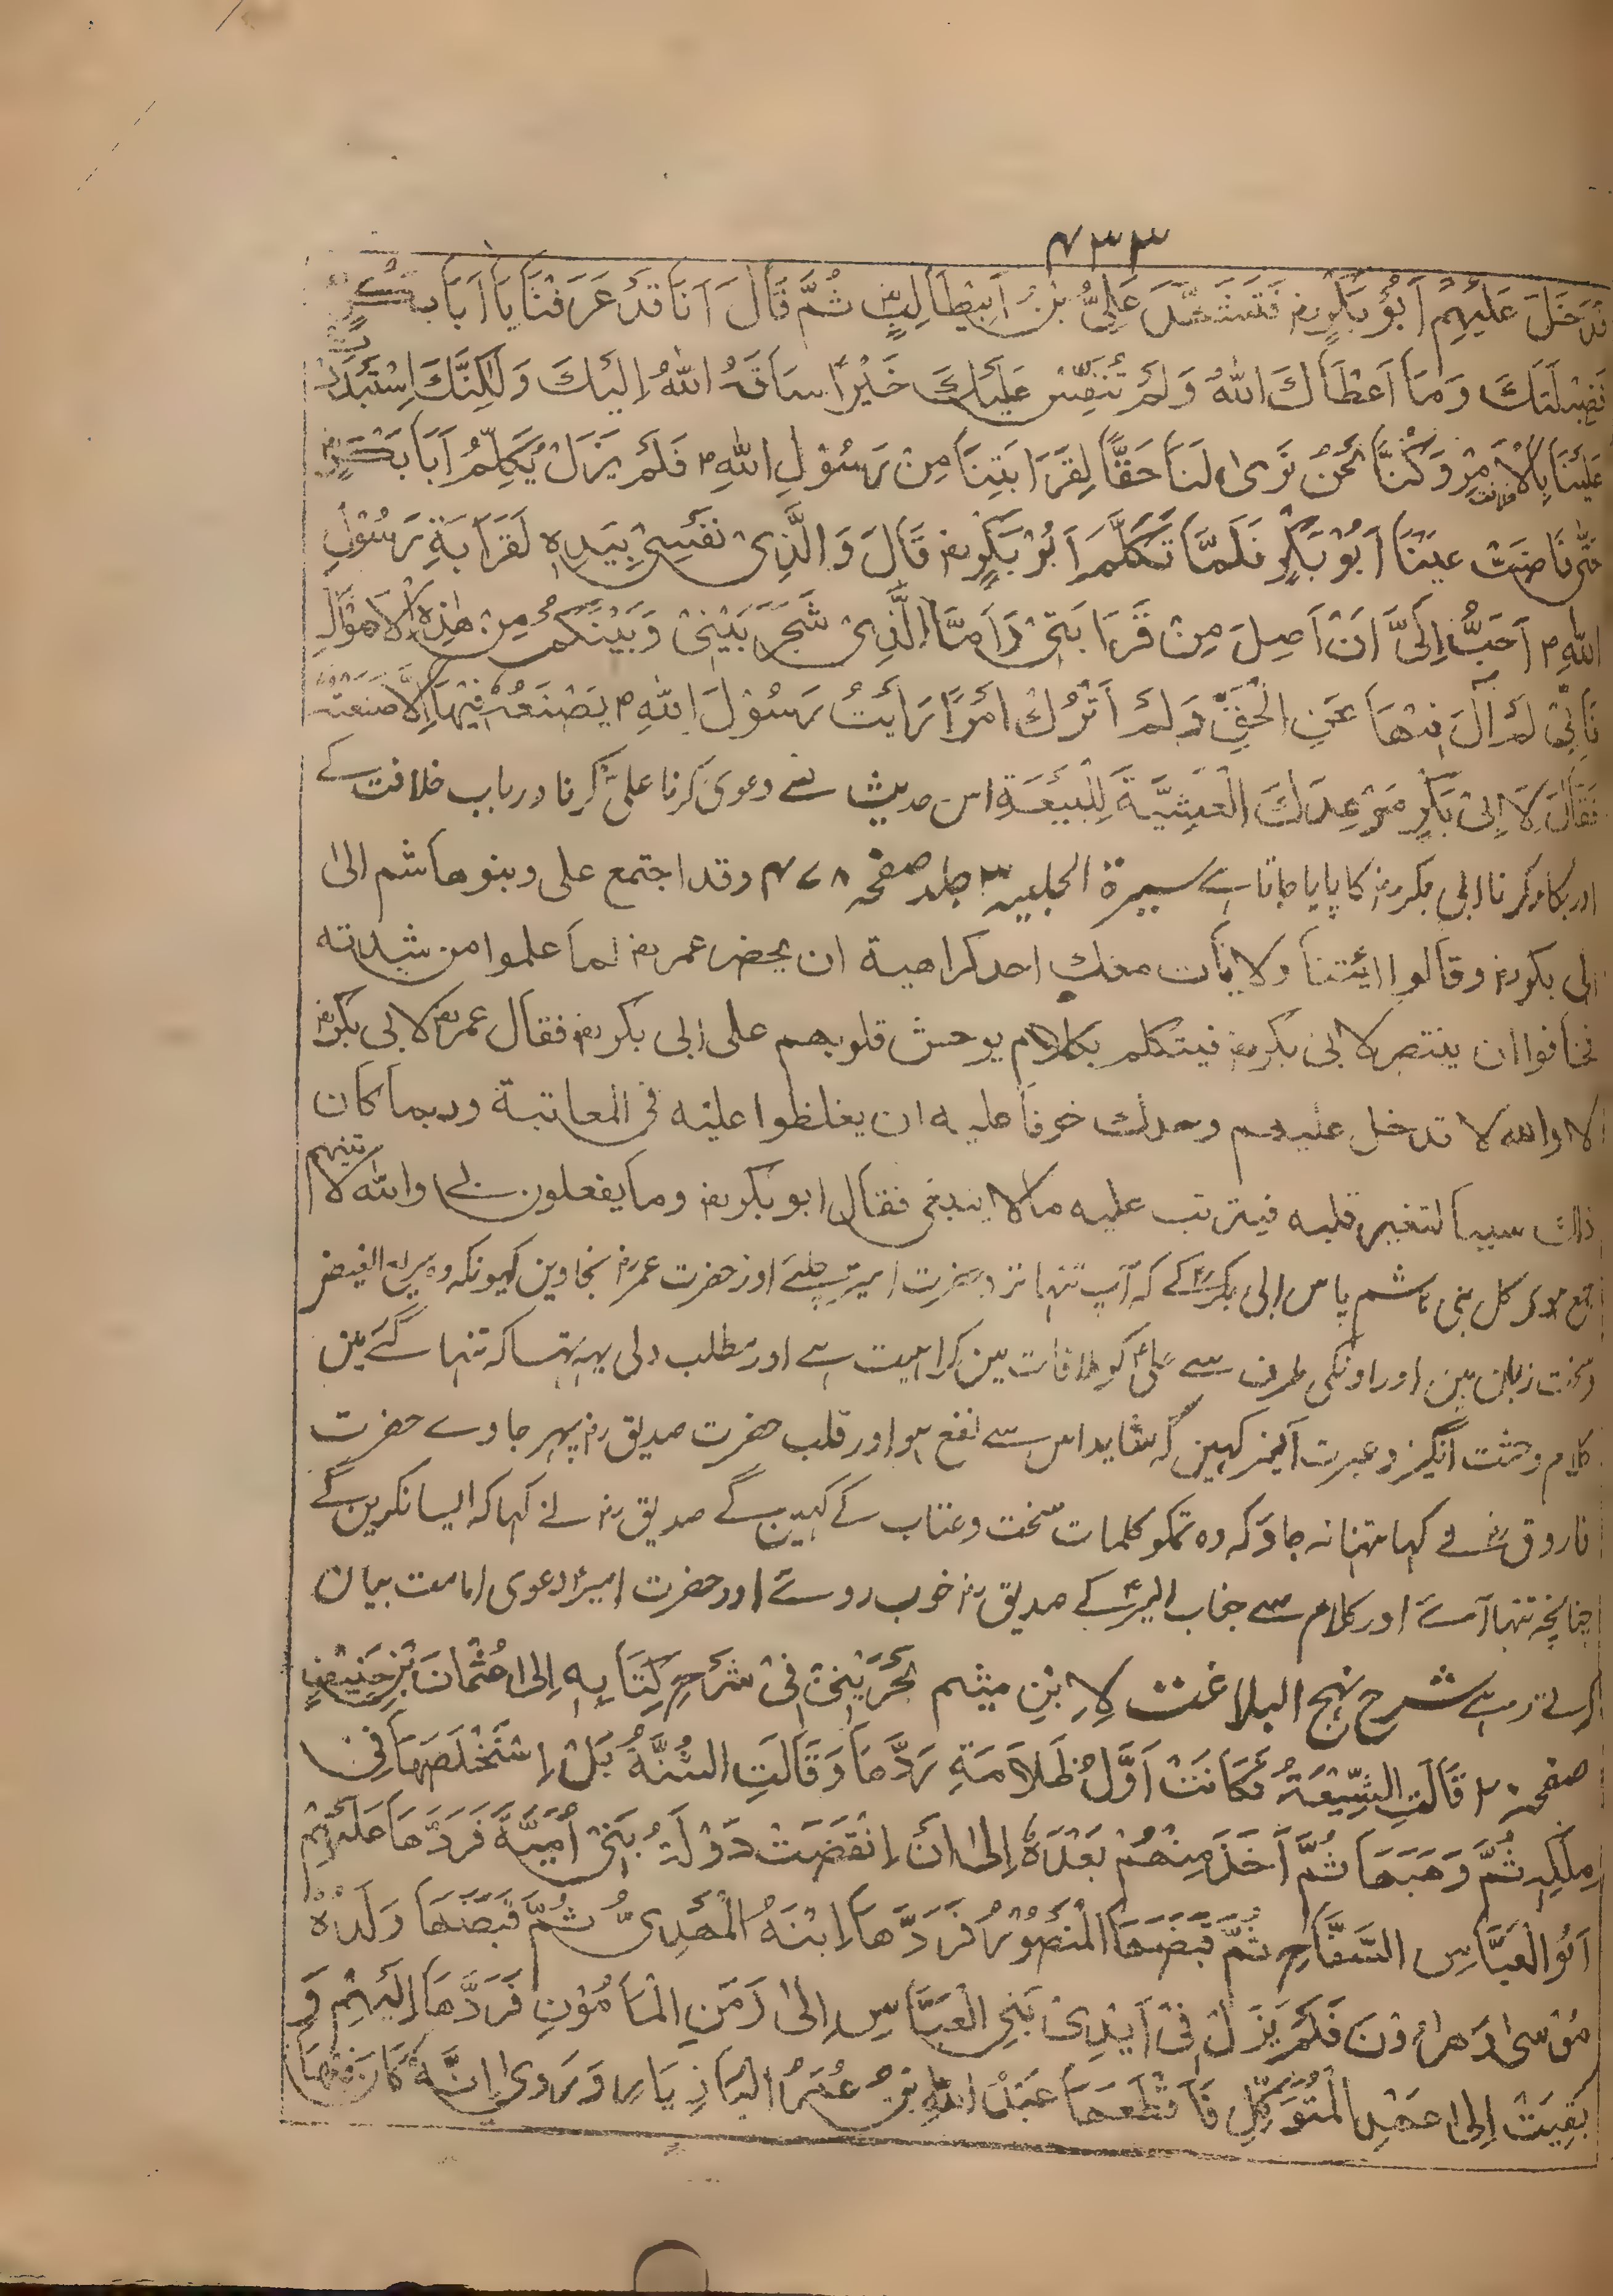 ۷۳۳
فَدَخَلَ عَلَيْهِمْ اَبُوْ بَكَرٍ رضہ فَتَشَهَّدَ عَلِيُّ بْنُ اَبِيْطَالِبٍ ثُمَّ قَالَ اَنَا قَدْ عَرَفْنَا يَا اَبَا بَكْرٍ
فَضِيْلَتَكَ وَمَا اَعْطَاكَ اللهُ وَلَمْ نَنْفِسْ عَلَيْكَ خَيْرًا سَاقَهُ اللهُ اِلَيْكَ وَلٰكِنَّكَ اِسْتَبْدَدْتَ
عَلَيْنَا بِالْاَمْرِ وَكُنَّا نَحْنُ نَرٰى لَنَا حَقًّا لِقَرَابَتِنَا مِنْ رَسُوْلِ اللهِ ﷺ فَلَمْ يَزَلْ يُكَلِّمُ اَبَا بَكْرٍ رضہ
حَتّٰى فَاضَتْ عَيْنَا اَبُوْ بَكْرٍ فَلَمَّا تَكَلَّمَ اَبُوْ بَكْرٍ رضہ قَالَ وَالَّذِىْ نَفْسِىْ بِيَدِهٖ لَقَرَابَةِ رَسُوْلِ
اللهِ ﷺ اَحَبُّ اِلَىَّ اَنْ اَصِلَ مِنْ قَرَابَتِىْ وَاَمَّا الَّذِىْ شَجَرَ بَيْنِىْ وَبَيْنَكُمْ مِنْ هٰذِهِ الْاَمْوَالِ
فَاِنِّىْ لَمْ اٰلَ فِيْهَا عَنِ الْحَقِّ وَلَمْ اَتْرُكْ اَمْرًا رَاَيْتُ رَسُوْلَ اللهِ ﷺ يَصْنَعُهٗ فِيْهَا اِلَّا صَنَعْتُهٗ
فَقَالَ لِاَبِىْ بَكْرٍ مَوْعِدُكَ الْعَشِيَّةَ لِلْبَيْعَةِ اس حدیث سے دعویٰ کرنا علیؑ کرنا درباب خلافت کے
اور بکا و کرنا ابی بکر رضہ کا پایا جاتا ہے سیرة الحلبیہ ۳ جلد صفحہ ۷۷۸ وقد اجتمع علی وبنوهاشم الیٰ
ابی بکر رضہ وقالوا ائتنا ولا یأت معك احد کراهية ان یحضر عمر رضہ لما علموا من شدته
فخافوا ان ینتصر لابی بکر رضہ فیتکلم بکلام یوحش قلوبهم علی ابی بکر رضہ فقال عمر رضہ لابی بکر رضہ
لا والله لا تدخل علیهم وحدك خوفا علیه ان یغلظوا علیه فی المعاتبة وربما کان
ذلك سببا لتغیر قلبه فیترتب علیه مالا ینبغی فقال ابو بکر رضہ وما یفعلون بی والله لا تینهم
جمع ہو کر کل بنی ہاشم پاس ابی بکر رضہ کے کہ آپ تنہا نزد حضرت امیرؑ چلئے اور حضرت عمر رضہ نجاوین کیونکہ وہ
وسخت زبان ہین اور اونکی طرف سے علیؑ کو ملاقات مین کراہیت ہے اور مطلب دلی یہہ تہا کہ تنہا گئے مین
کلام وحشت انگیز و عبرت آمیز کہین کہ شاید اس سے نفع ہو اور قلب حضرت صدیق رضہ پہر جاوے حضرت
فاروق رضہ نے کہا تنہا نہ جاؤ کہ وہ تمکو کلمات سخت و عتاب کے کہین گے صدیق رضہ نے کہا کہ ایسا نکرین گے
چنانچہ تنہا آئے اور کلام سے جناب امیرؑ کے صدیق رضہ خوب روئے اور حضرت امیرؑ دعوی امامت بیان
کرتے رہے شرح نہج البلاغت لِاِبْنِ میثم بَحْرَيْنِىْ فِىْ شَرْحِ كِتَابِهٖ اِلىٰ عُثْمَانَ بْنِ حَنِيْفٍ
صفحہ ۲۰ قَالَتِ الشِّيْعَةُ فَكَانَتْ اَوَّلُ ظَلَامَةٍ رَدَّهَا وَقَالَتِ السُّنَّةُ بَلْ اِسْتَخْلَصَهَا فِىْ
مِلْكِهٖ ثُمَّ وَهَبَهَا ثُمَّ اَخَذَ مِنْهُمْ بَعْدَهٗ اِلىٰ اَنْ اِنْقَضَتْ دَوْلَةُ بَنِىْ اُمَيَّةَ فَرَدَّهَا عَلَيْهِمْ
اَبُو الْعَبَّاسِ السَّفَّاحِ ثُمَّ قَبَضَهَا الْمَنْصُوْرُ فَرَدَّهَا اِبْنَهُ الْمَهْدِىُّ ثُمَّ قَبَضَهَا وَلَدُهٗ
مُوْسىٰ وَهَارُوْنَ فَلَمْ يَزَلْ فِىْ اَيْدِىْ بَنِى الْعَبَّاسِ اِلىٰ زَمَنِ الْمَأْمُوْنِ فَرَدَّهَا اِلَيْهِمْ وَ
بَقِيَتْ اِلىٰ عَهْدِ الْمُتَوَكِّلِ فَاَقْطَعَهَا عَبْدُ اللهِ بْنُ عُمَرُ الْبَازِيَارِ وَرَوىٰ اِنَّهٗ كَانَ فِيْهَا